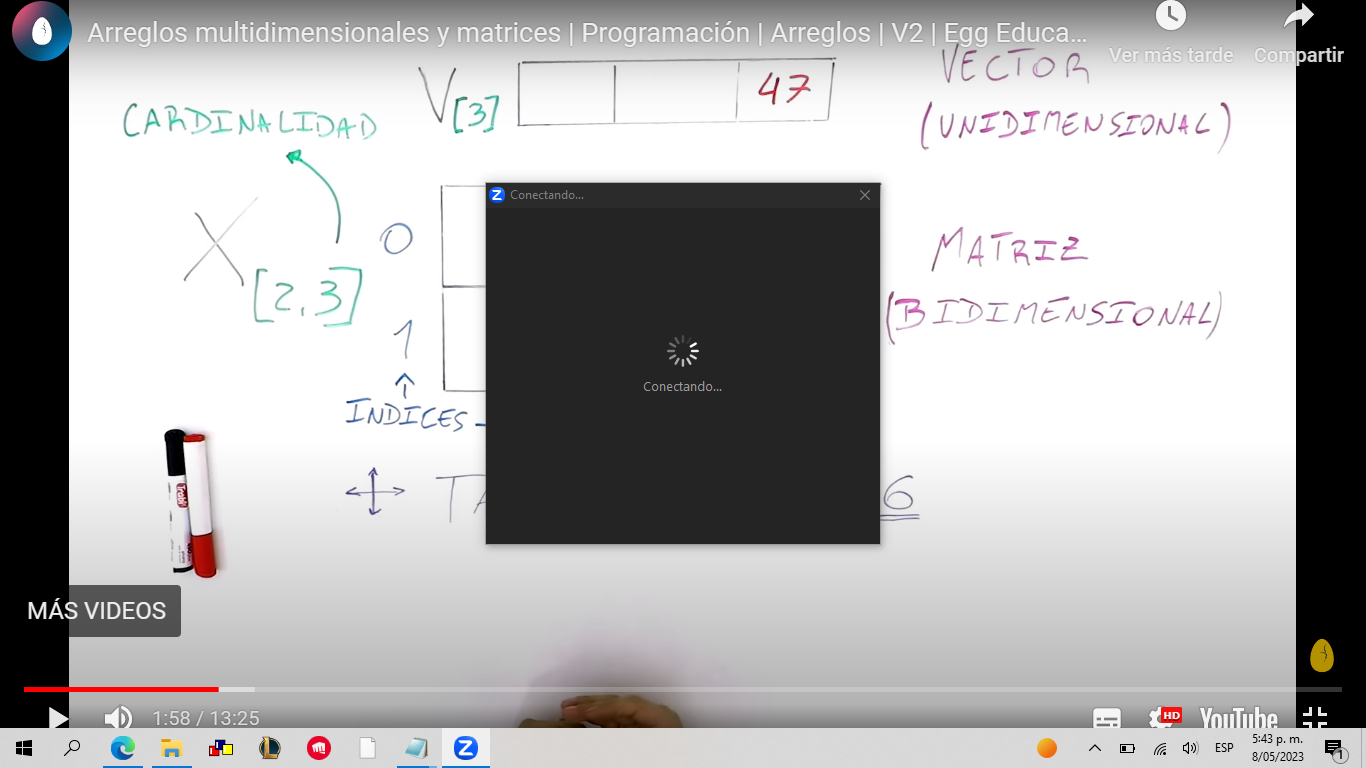 Arreglos multidimensionales y matrices | Programación | Arreglos | V2 | Egg Educa...
Ver más tarde
Compartir
V[3]
47
VECTOR
(UNIDIMENSIONAL)
CARDINALIDAD
X[2,3]
0
1
INDICES -
MATRIZ
(BIDIMENSIONAL)
Conectando...
Conectando...
TA
6
MÁS VIDEOS
1:58 / 13:25
HD
YouTube
ESP
5:43 p. m.
8/05/2023
1